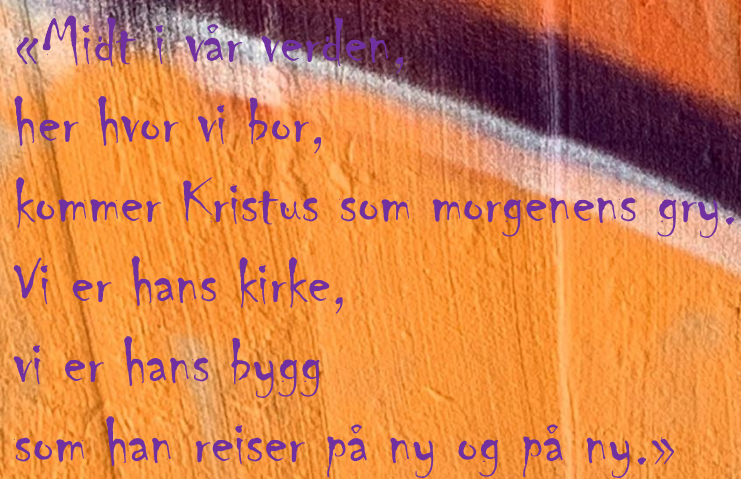 «Midt i vår verden,
her hvor vi bor,
kommer Kristus som morgenens gry.
Vi er hans kirke,
vi er hans bygg
som han reiser på ny og på ny.»